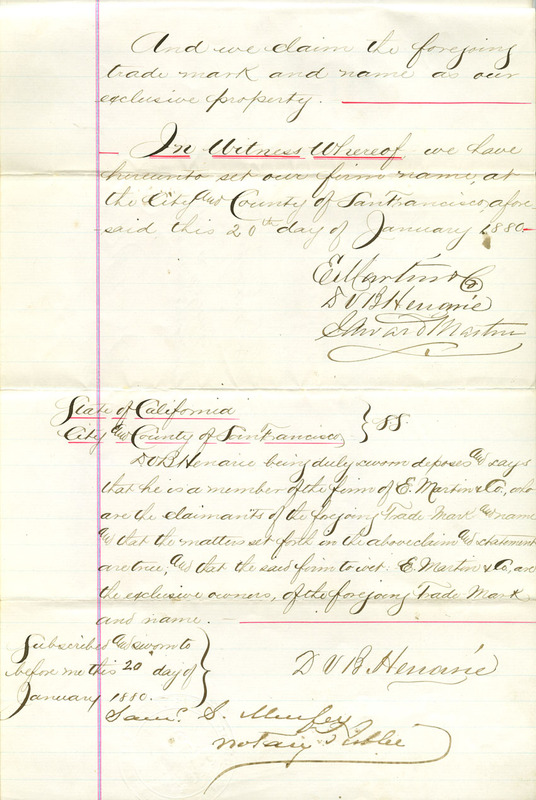 And we claim the foregoing
trade mark and name as our
exclusive property.
In Witness Whereof we have
hereunto set our firm name, at
the City and County of San Francisco, afore-
said this 20th day of January 1880
E. Martin & Co
D V B Henarie
Edward Martin
State of California
City and County of San Francisco } SS.
D V B Henarie being duly sworn deposes and says
that he is a member of the firm of E. Martin & Co, who
are the claimants of the foregoing Trade Mark and name
and that the matters set forth in the above claim and statement
are true, and that the said firm to wit: E. Martin & Co, are
the exclusive owners, of the foregoing Trade Mark
and name.
Subscribed and sworn to
before me this 20 day of
January 1880.
D V B Henarie
Saml. S. Murfey
Notary Public